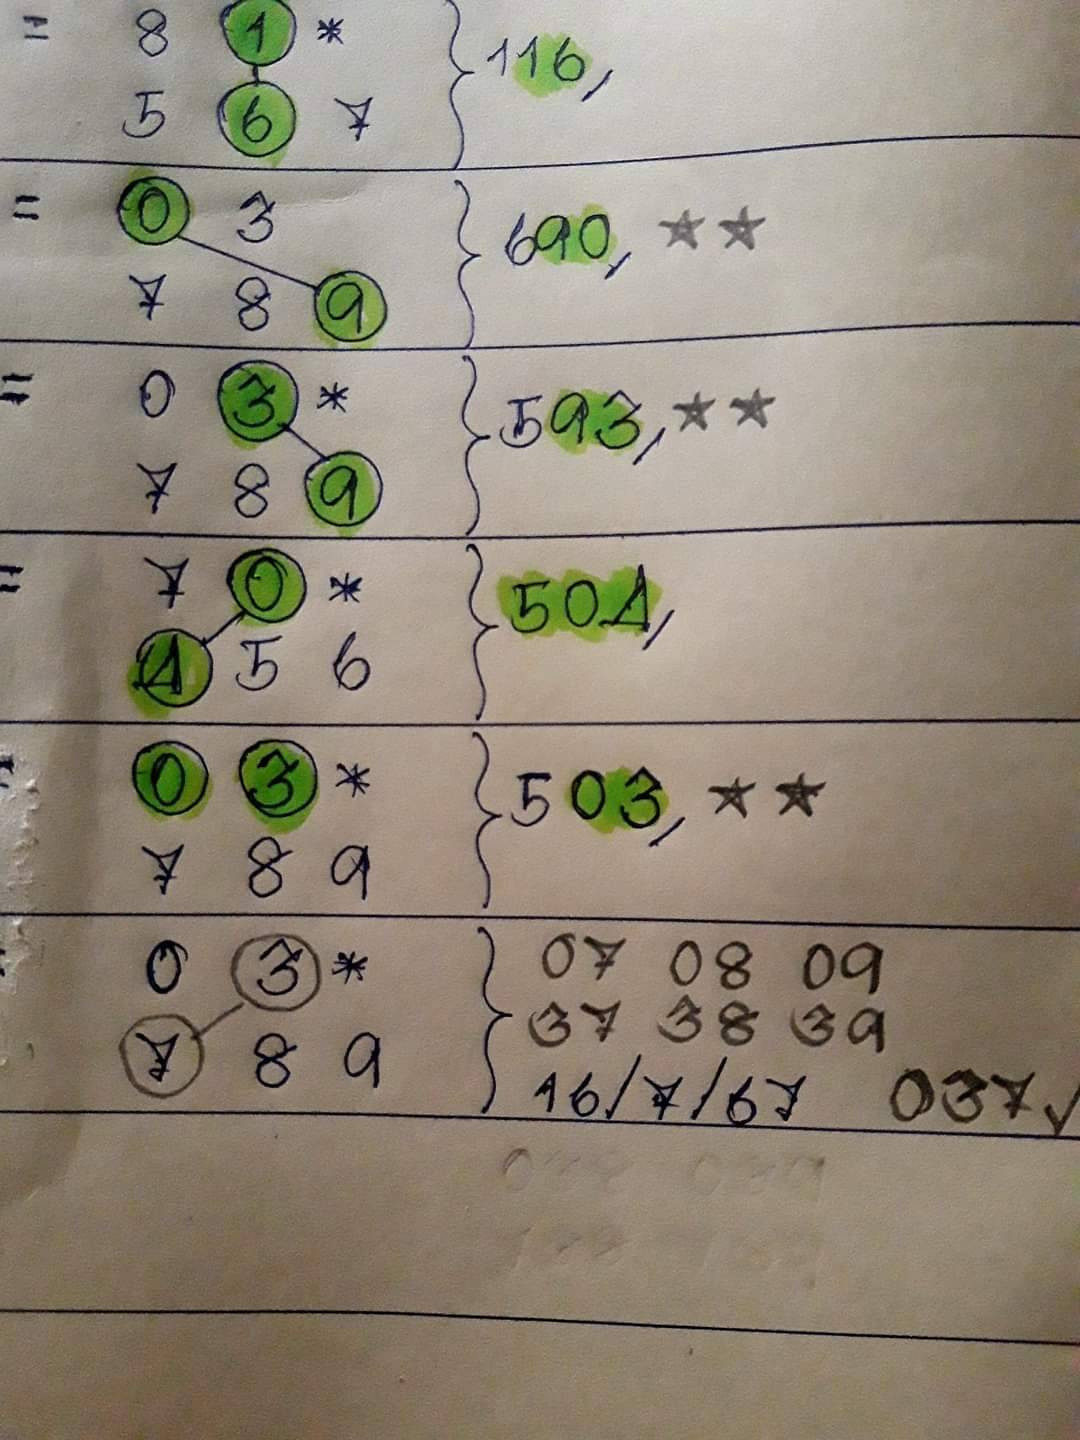 = 8 1 * } 116,
5 6 7
= 0 3 } 690, ★★
7 8 9
= 0 3 * } 593, ★★
7 8 9
= 7 0 * } 504,
4 5 6
= 0 3 * } 503, ★★
7 8 9
= 0 3 * } 07 08 09
37 38 39
7 8 9 16/7/67 037✓